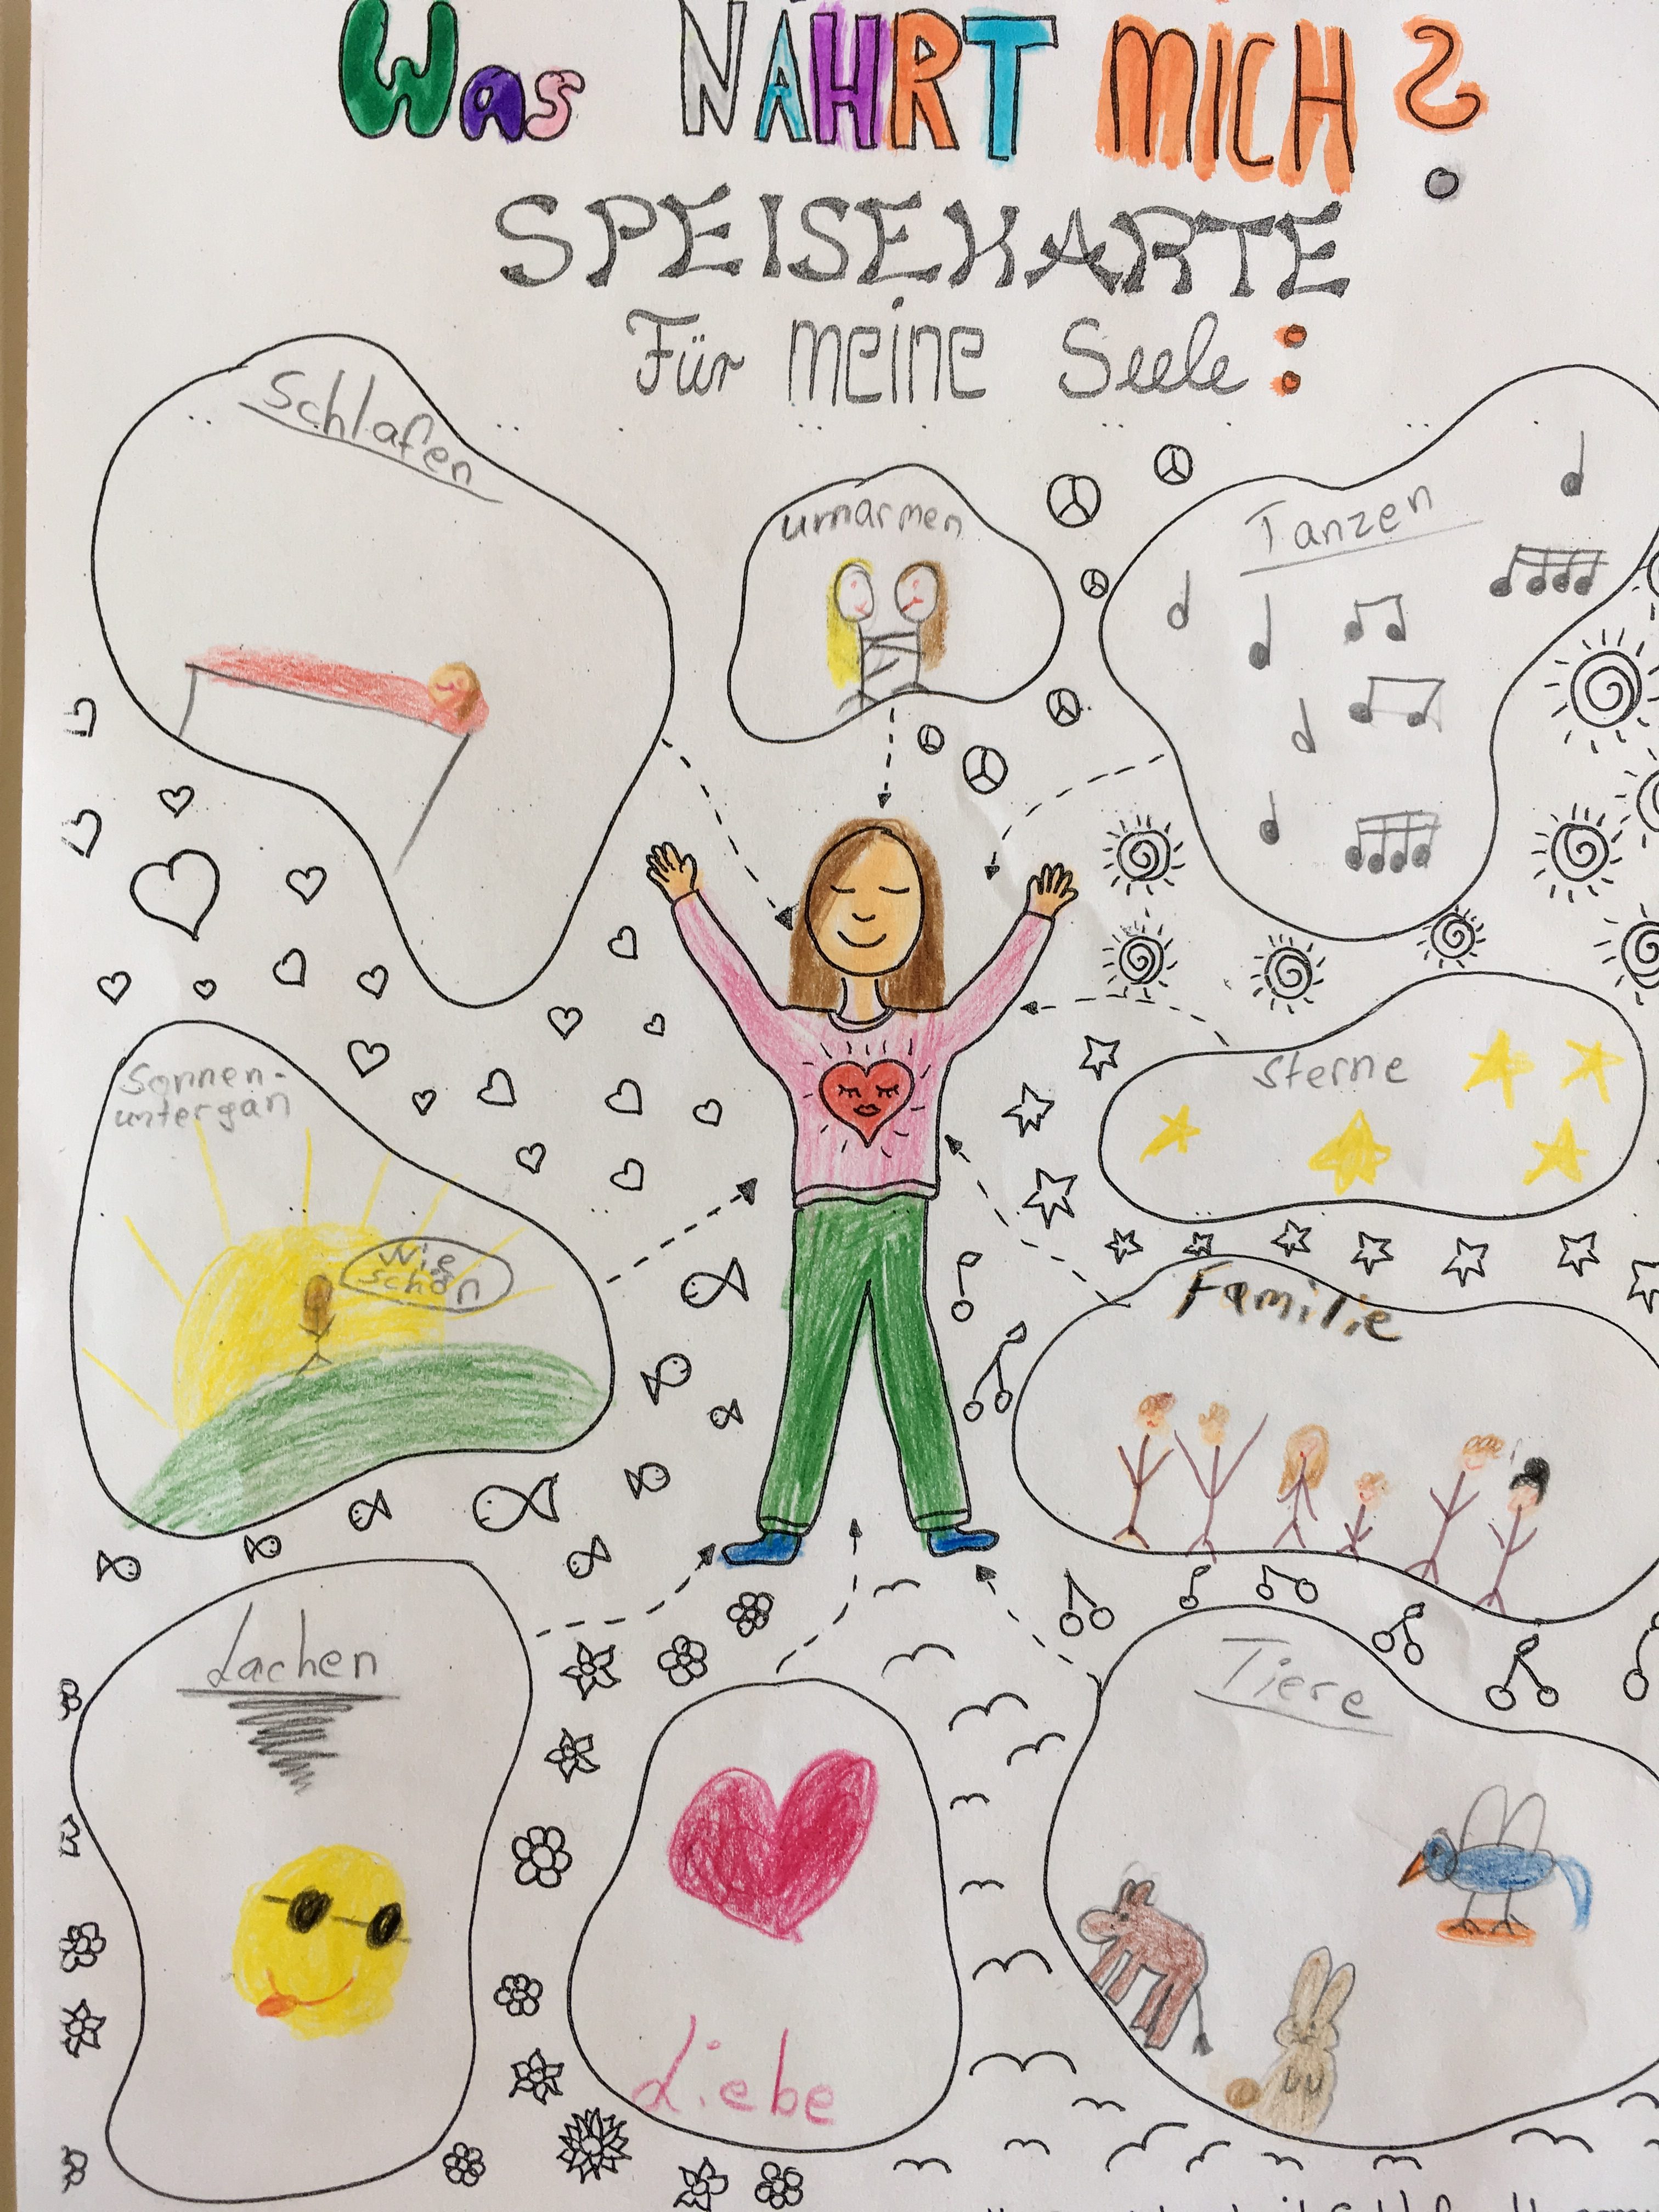 Was NÄHRT MICH?
SPEISEKARTE
Für meine Seele:
Schlafen
umarmen
Tanzen
Sonnen-
untergan
Wie
schön
Sterne
Familie
Lachen
Liebe
Tiere